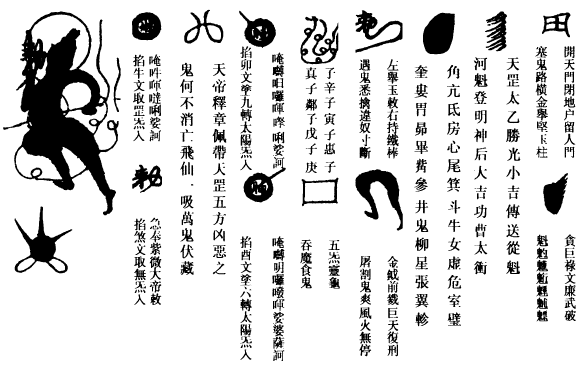 開天門閉地户留人門
塞鬼路橫金擧堅玉柱
貪巨祿文廉武破
天罡太乙勝光小吉傳送從魁
河魁登明神后大吉功曹太衡
角亢氐房心尾箕斗牛女虛危室璧
奎婁胃昴畢觜參井鬼柳星張翼軫
左擧玉敕右持鐵棒
遇鬼悉擒違奴寸斷
金鉞前巨天復刑
屠割鬼爽風火無停
子辛子寅子惠子
真子鄰子戊子庚
五炁靈龜
吞魔食鬼
唵唎娑訶
掐卯文塗九轉太陽炁入
唵娑婆薩訶
掐酉文塗六轉太陽炁入
天帝釋章佩帶天罡五方凶惡之
鬼何不消亡飛仙一吸萬鬼伏藏
唵吽唎娑訶
掐牛文取罡炁入
急奉紫微大帝敕
掐煞文取無炁入